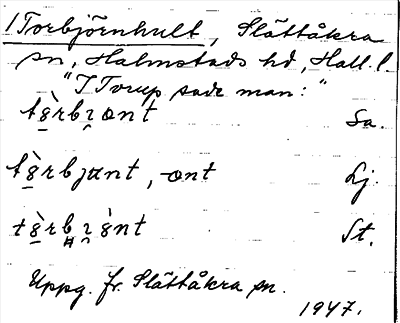 1 Torbjörnhult, Slättåkra
sn, Halmstads hd, Hall. l.
"I Torup sade man:"
tɛ̀rbɪont Sa.
tɛ̀rbjant, -ont Lj.
tɛ̀rbɪònt St.
Uppg. fr. Slättåkra sn.
1947.